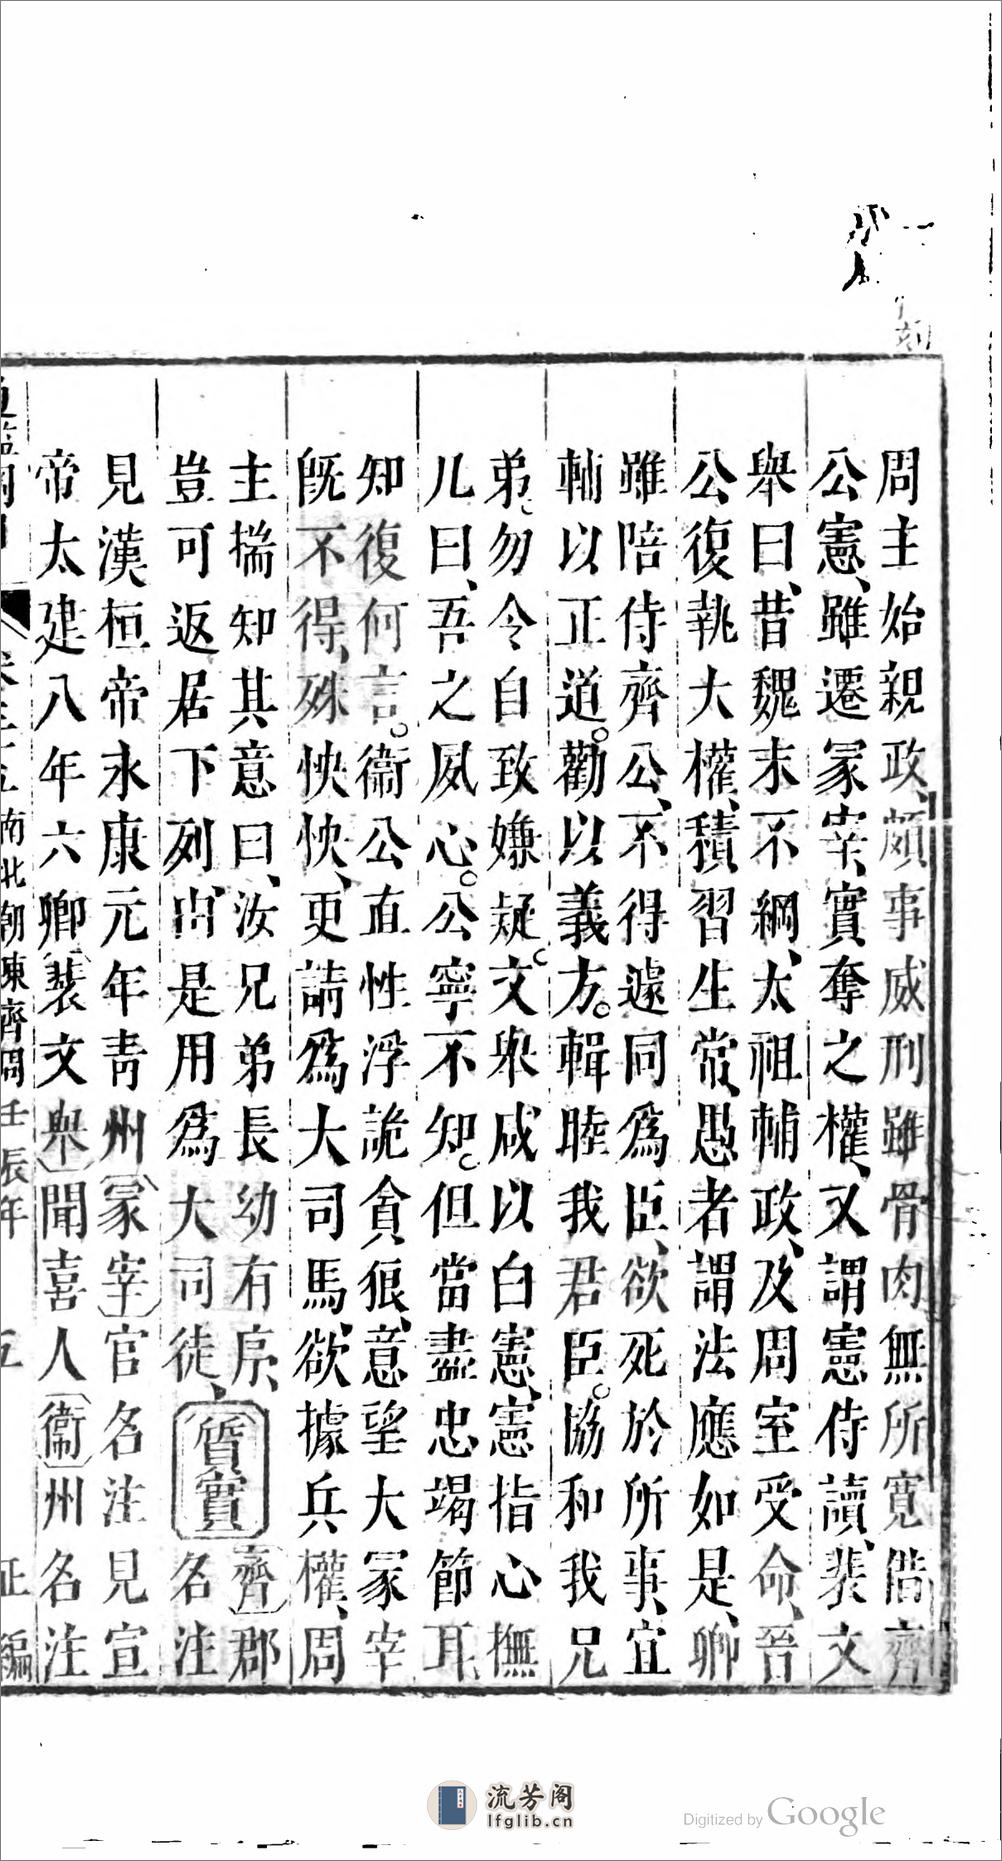 周主始親政頗事威刑雖骨肉無所寛借齊
公憲雖遷冢宰實奪之權又謂憲侍讀裴文
舉曰昔魏末不綱太祖輔政及周室受命晉
公復執大權積習生常愚者謂法應如是卿
雖陪侍齊公不得遽同爲臣欲死於所事宜
輔以正道勸以義方輯睦我君臣協和我兄
弟勿令自致嫌疑文舉咸以白憲憲指心撫
几曰吾之夙心公寧不知但當盡忠竭節耳
知復何言衞公直性浮詭貪狠意望大冢宰
旣不得殊怏怏更請爲大司馬欲據兵權周
主揣知其意曰汝兄弟長幼有序
豈可返居下列由是用爲大司徒
質實
齊郡
名注
見漢桓帝永康元年青州冢宰官名注見宣
帝太建八年六卿裴文舉聞喜人衞州名注
南北朝陳齊周 壬辰年 五 正編
流芳阁
lfglib.cn
Digitized by Google